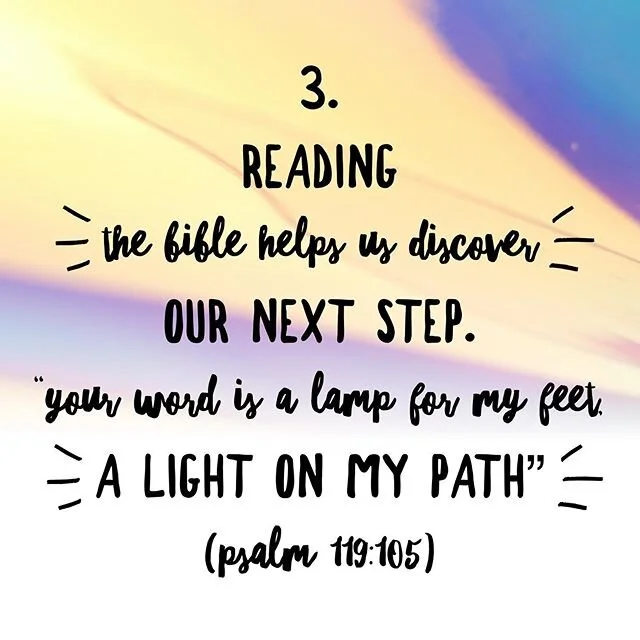 3.
READING
the bible helps us discover
OUR NEXT STEP.
"your word is a lamp for my feet,
A LIGHT ON MY PATH"
(psalm 119:105)